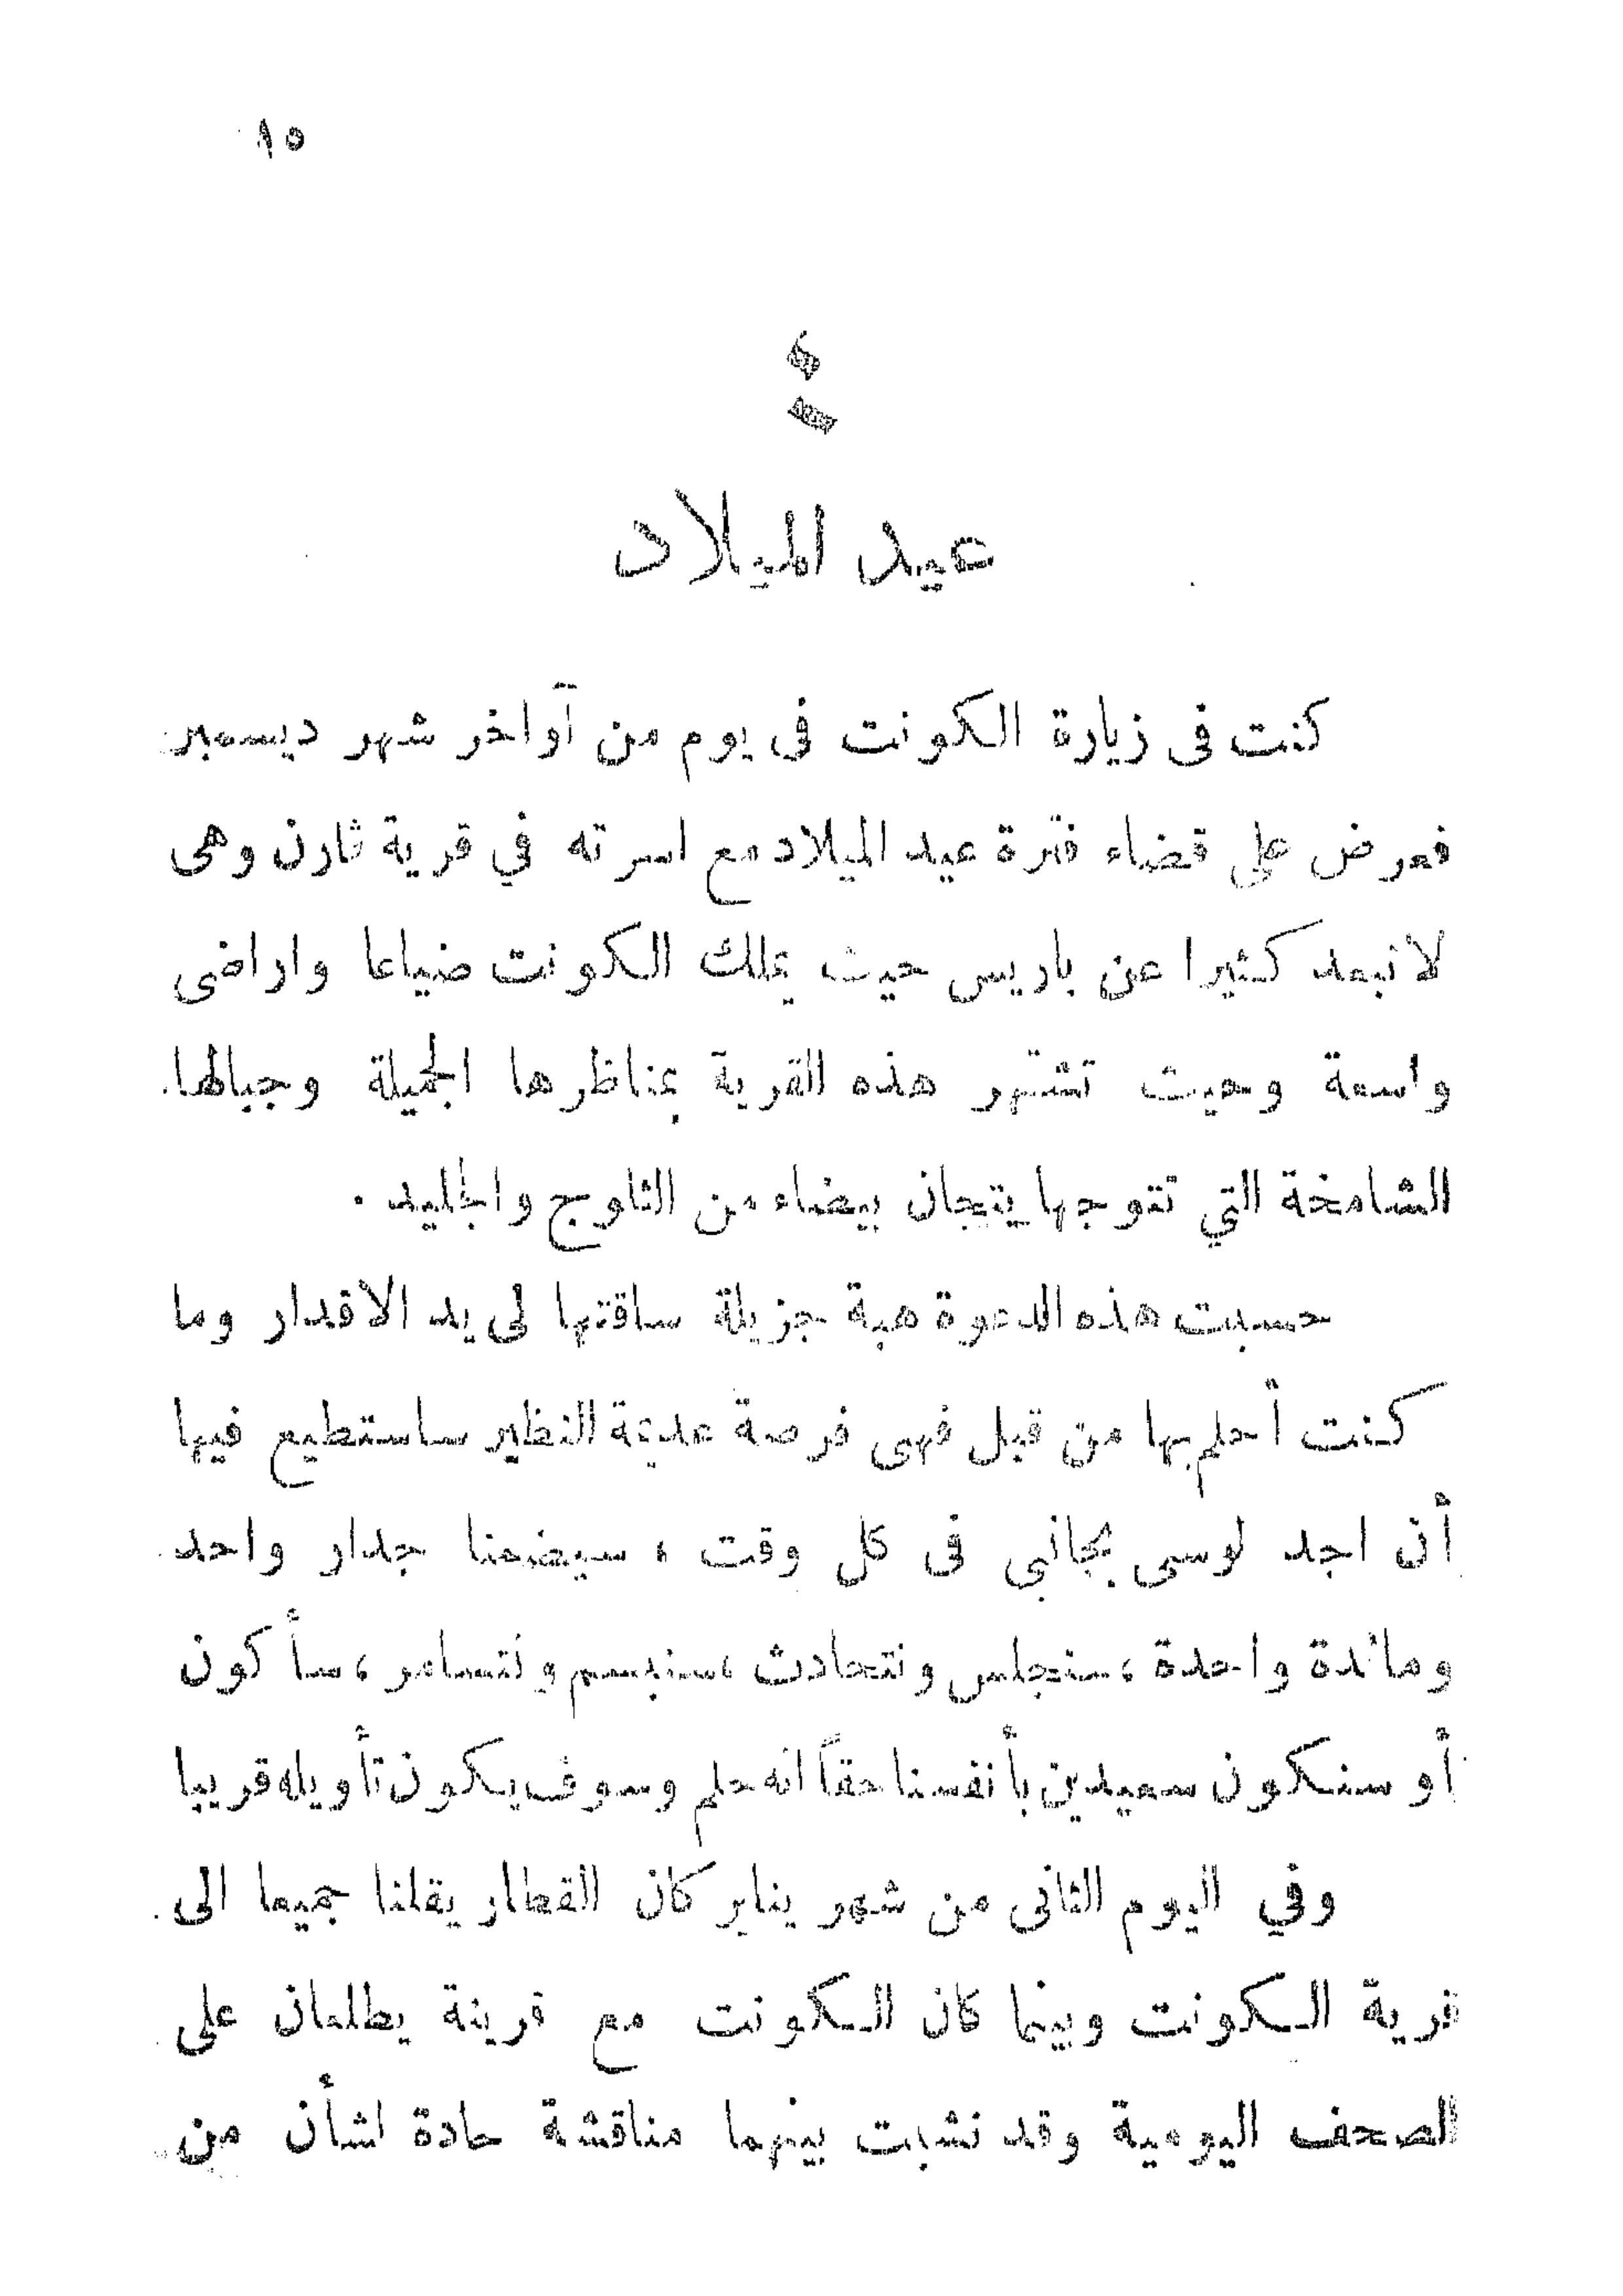 ١٥
عيد الميلاد
كنت فى زيارة الكونت فى يوم من آواخر شهر ديسمبر
فعرض على قضاء فترة عيد الميلاد مع اسرته في قرية ثارن وهى
لا تبعد كثيرا عن باريس حيث يملك الكونت ضياعا واراضى
واسعة وحيث تشتهر هذه القرية بمناظرها الجميلة وجبالها
الشامخة التي تتوجها يتيجان بيضاء من الثلوج والجليد .
حسبت هذه الدعوة هبة جزيلة ساقتها لى يد الاقدار وما
كنت أحلم بها من قبل فهى فرصة عديمة النظير ساستطيع فيها
أن اجد لوسى بجانبي فى كل وقت ، سيضمنا جدار واحد
ومائدة واحدة ، سنجلس ونتحادث ، سنبسم ونتسامر ، سأكون
أو سنكون سعيدين بأنفسنا حقاً انه حلم وسوف يكون تأويله قريبا
وفي اليوم الثانى من شهر يناير كان القطار يقلنا جميعا الى
قرية الكونت وبينما كان الكونت مع قرينة يطلعان على
الصحف اليومية وقد نشبت بينهما مناقشة حادة لشأن من